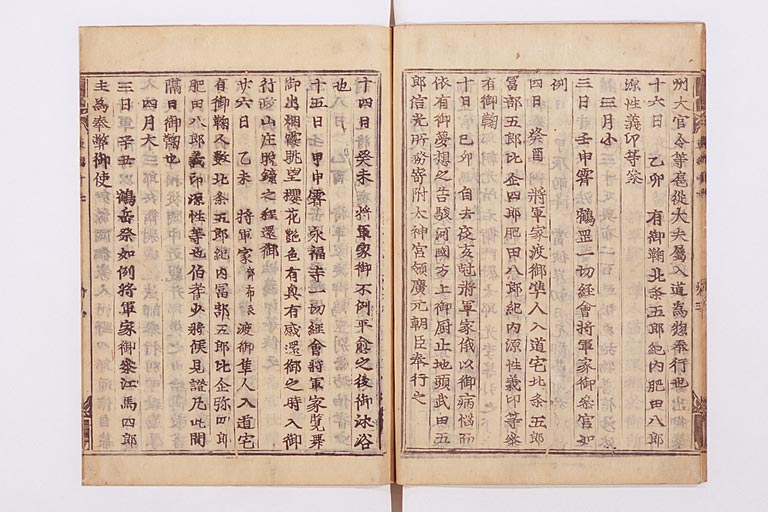 州大官令等扈從大夫屬入道爲惣奉行也
十六日　乙卯　有御鞠北条五郎紀内肥田八郎
源性義印等参
三月小
三日壬申霽鶴罡一切經會將軍家御參宮如
例
四日　癸酉　將軍家渡御隼人入道宅北条五郎
冨部五郎比企四郎肥田八郎紀内源性義印等參
有御鞠
十日　己卯　自去夜亥尅將軍家俄以御病悩而
依有御夢想之告駿河國方上御厨止地頭武田五
郎信光所務寄附太神宮領廣元朝臣奉行之
十四日　癸未　將軍家御不例平愈之後御沐浴
也
十五日　甲申霽　永福寺一切經會將軍家覽畢
御出烟霞眺望櫻花艶色有興有感還御之時入御
行政山庄殷鐘之程還御
廿六日　乙未　將軍家　布衣　渡御隼人入道宅
有御鞠人数北条五郎紀内冨部五郎比企弥四郎
肥田八郎義印源性等也伯耆少將候見證凡此間
隔日御鞠也
四月大
三日　辛丑　鶴岳祭如例將軍家御參江馬四郎
主爲奉幣御使